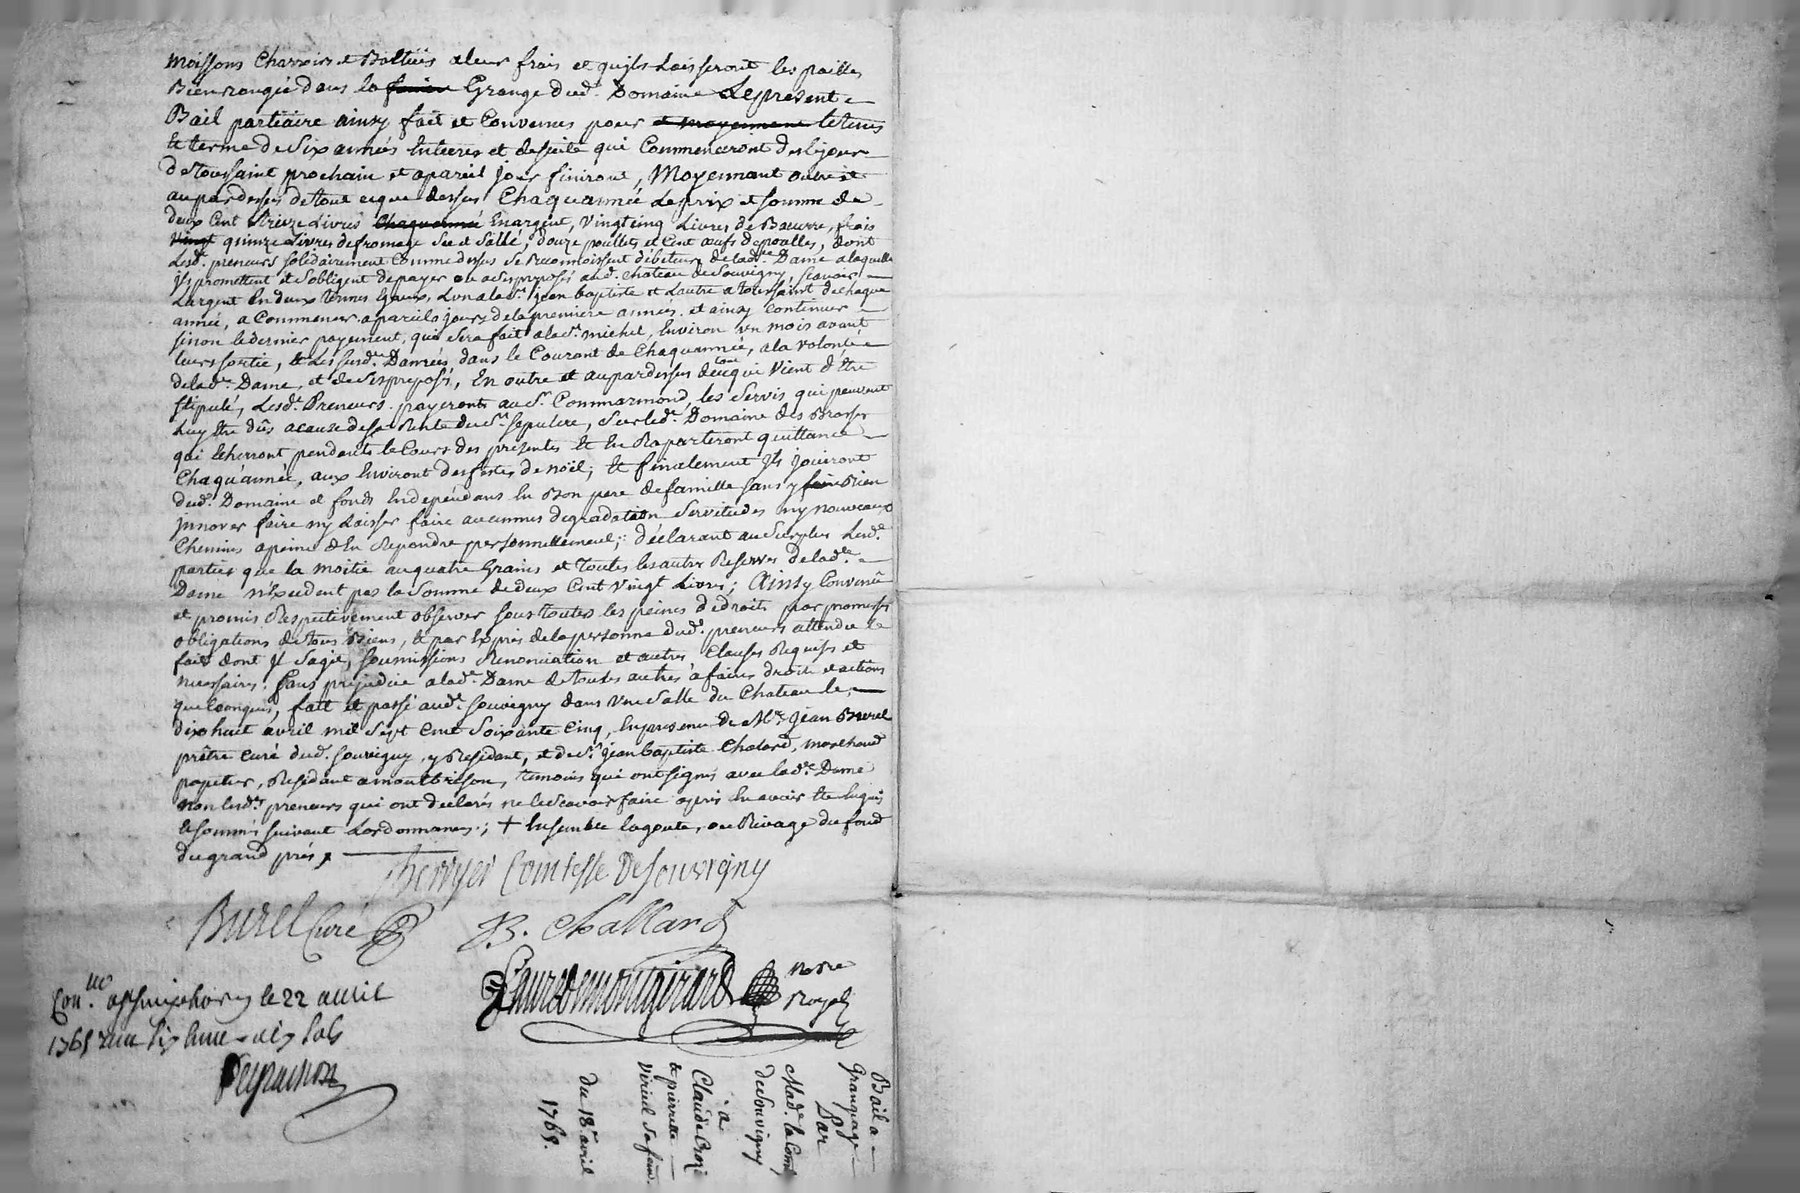 moissons Charroirs et Battües a leur frais et qu'jls Laisseront les pailles
Bien rangée dans la Grange dud. Domaine Le present
Bail partiaire ainsy fait et Convenus pour et moyennent le tems
et terme de Six années Entieres et de suite qui Commenceront des le jour
de toussaint prochain et a pareil jour finiront, Moyennant outre et
au par dessus de tout ce que dessus Chaqu'année Le prix et somme de
deux Cent treize Livres Chaquannée En argent, Vingt cinq Livres de Baeurre, frais
Vingt quinze Livres de fromage Sec et Sallé, douze poullets et Cent oeufs de poulles, dont
Lesd. preneurs solidairement Comme dessus Se reconnoissent débiteurs de lad. Dame a laquelle
jls promettent et s'obligent de payer ou a Ses preposés aud. chateau de Souvigny, scavoir
L'argent En deux termes Egaux, L'un a la st. jean baptiste et L'autre a toussaint de chaque
année, a Commencer a pareils jours de la premiere année et ainsy continuer
sinon le dernier payement, qui Sera fait a la st. michel, Environ un mois avant
leurs sortie, et Les susd. Danrées dans le Courant de Chaquannée, a la volonté
de lad. Dame, et de Ses preposés, En outre et au par dessus de tout ce qui Vient d'Etre
stipulés, Lesd. Preneurs payeronts au Sr. Commarmond, les Servis qui peuvent
luy Etre dûs a cause de sa Rente du St. sepulcre, Sur led. Domaine des Brosses
qui Echerront pendants le Cours des presentes Et En Raporteront quittance
Chaqu'année, aux Environt des festes de noël; Et finalement jls jouiront
dud. Domaine et fonds Independans En Bon pere de famille sans y faire Rien
jnnover faire ny Laisser faire aucunnes degradation Servitudes ny nouveaux
Chemins a peine d'En Repondre personnellement; déclarant au Surplus Lesd.
parties que la moitié au quatre Grains et toutes les autres Reserves de lad.
Dame n'Excedent pas la Somme de deux Cent vingt Livres; Ainsy Convenû
et promis Respectivement observer sous toutes les peines de droits par promesses
obligations de tous Biens, et par Exprès de la personne dud. preneurs attendu le
fait dont jl s'agit, soumissions Renonciation et autres Clauses Requises et
necessaires. sans prejudice a lad. Dame de toutes autres affaires droits et actions
quelconques, fait et passé aud. souvigny dans Une Salle du Chateau le
dix huit avril mil Sept Cent Soixante Cinq, En presence de Mr. jean Burel
prêtre Curé dud. souvigny, y Residant, et de Sr. jean baptiste Chalard, marchand
papetier, Residant a montbrison, temoins qui ont signés avec lad. Dame
non lesd. preneurs qui ont declarés ne le Scavoir faire apres En avoir Eté Enquis
et sommés suivant L'ordonnance; + Ensemble la goute, ou Rivage du fond
du grand prés,
Comtesse De souvigny
Burel Curé B. Challard
Faure de montgirard Notre
Royal
le 22 avril
1765 dix sols
Bail a
Grangeage
Par
Mad. la Comt.
de Souvigny
à
Claude Croz
et pierrette
sa fem.
du 18 avril
1765.